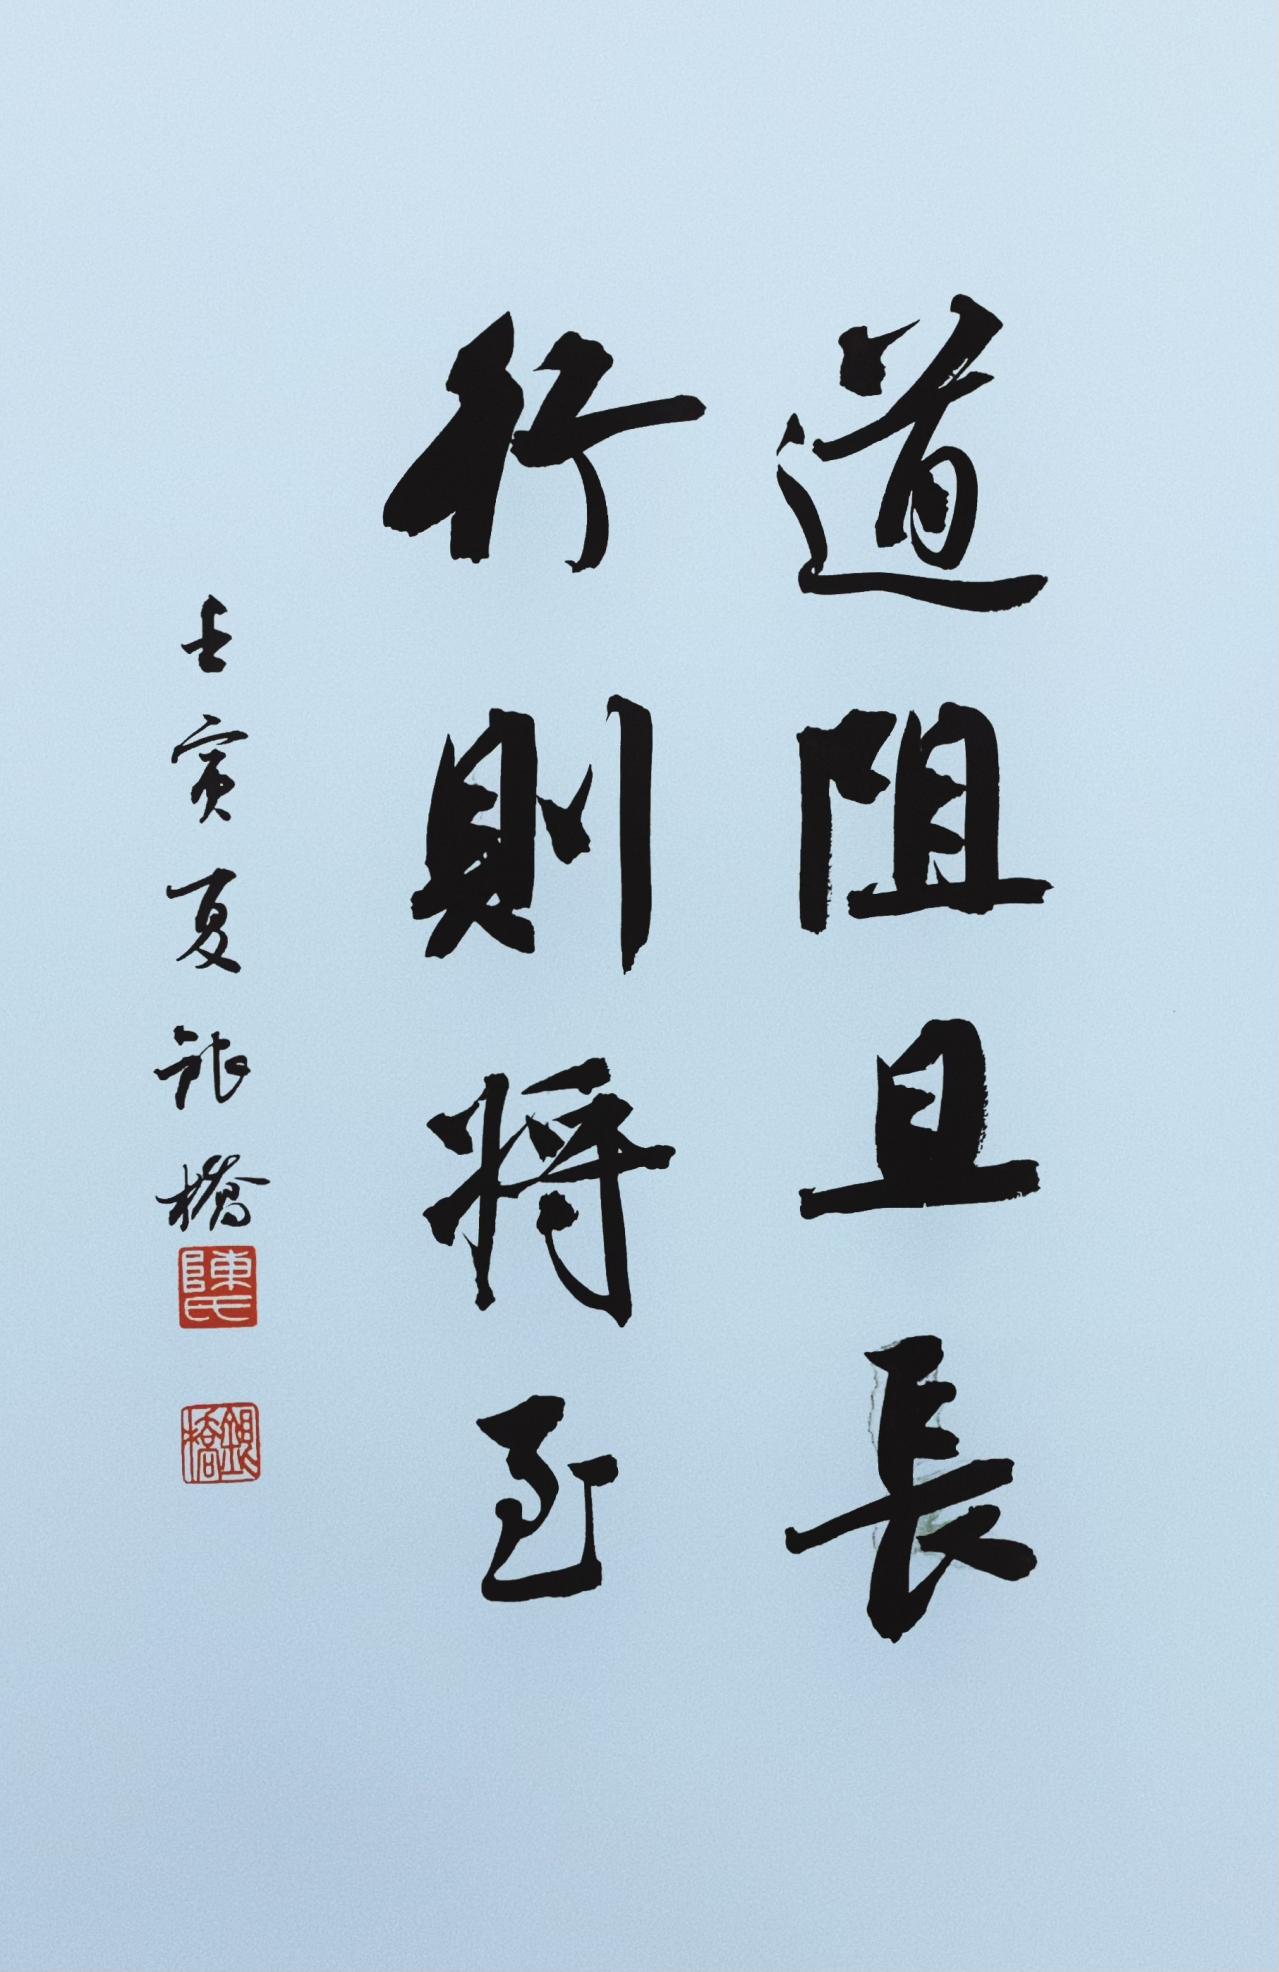 道阻且長
行則將至
壬寅夏銀橋
陳氏
銀橋